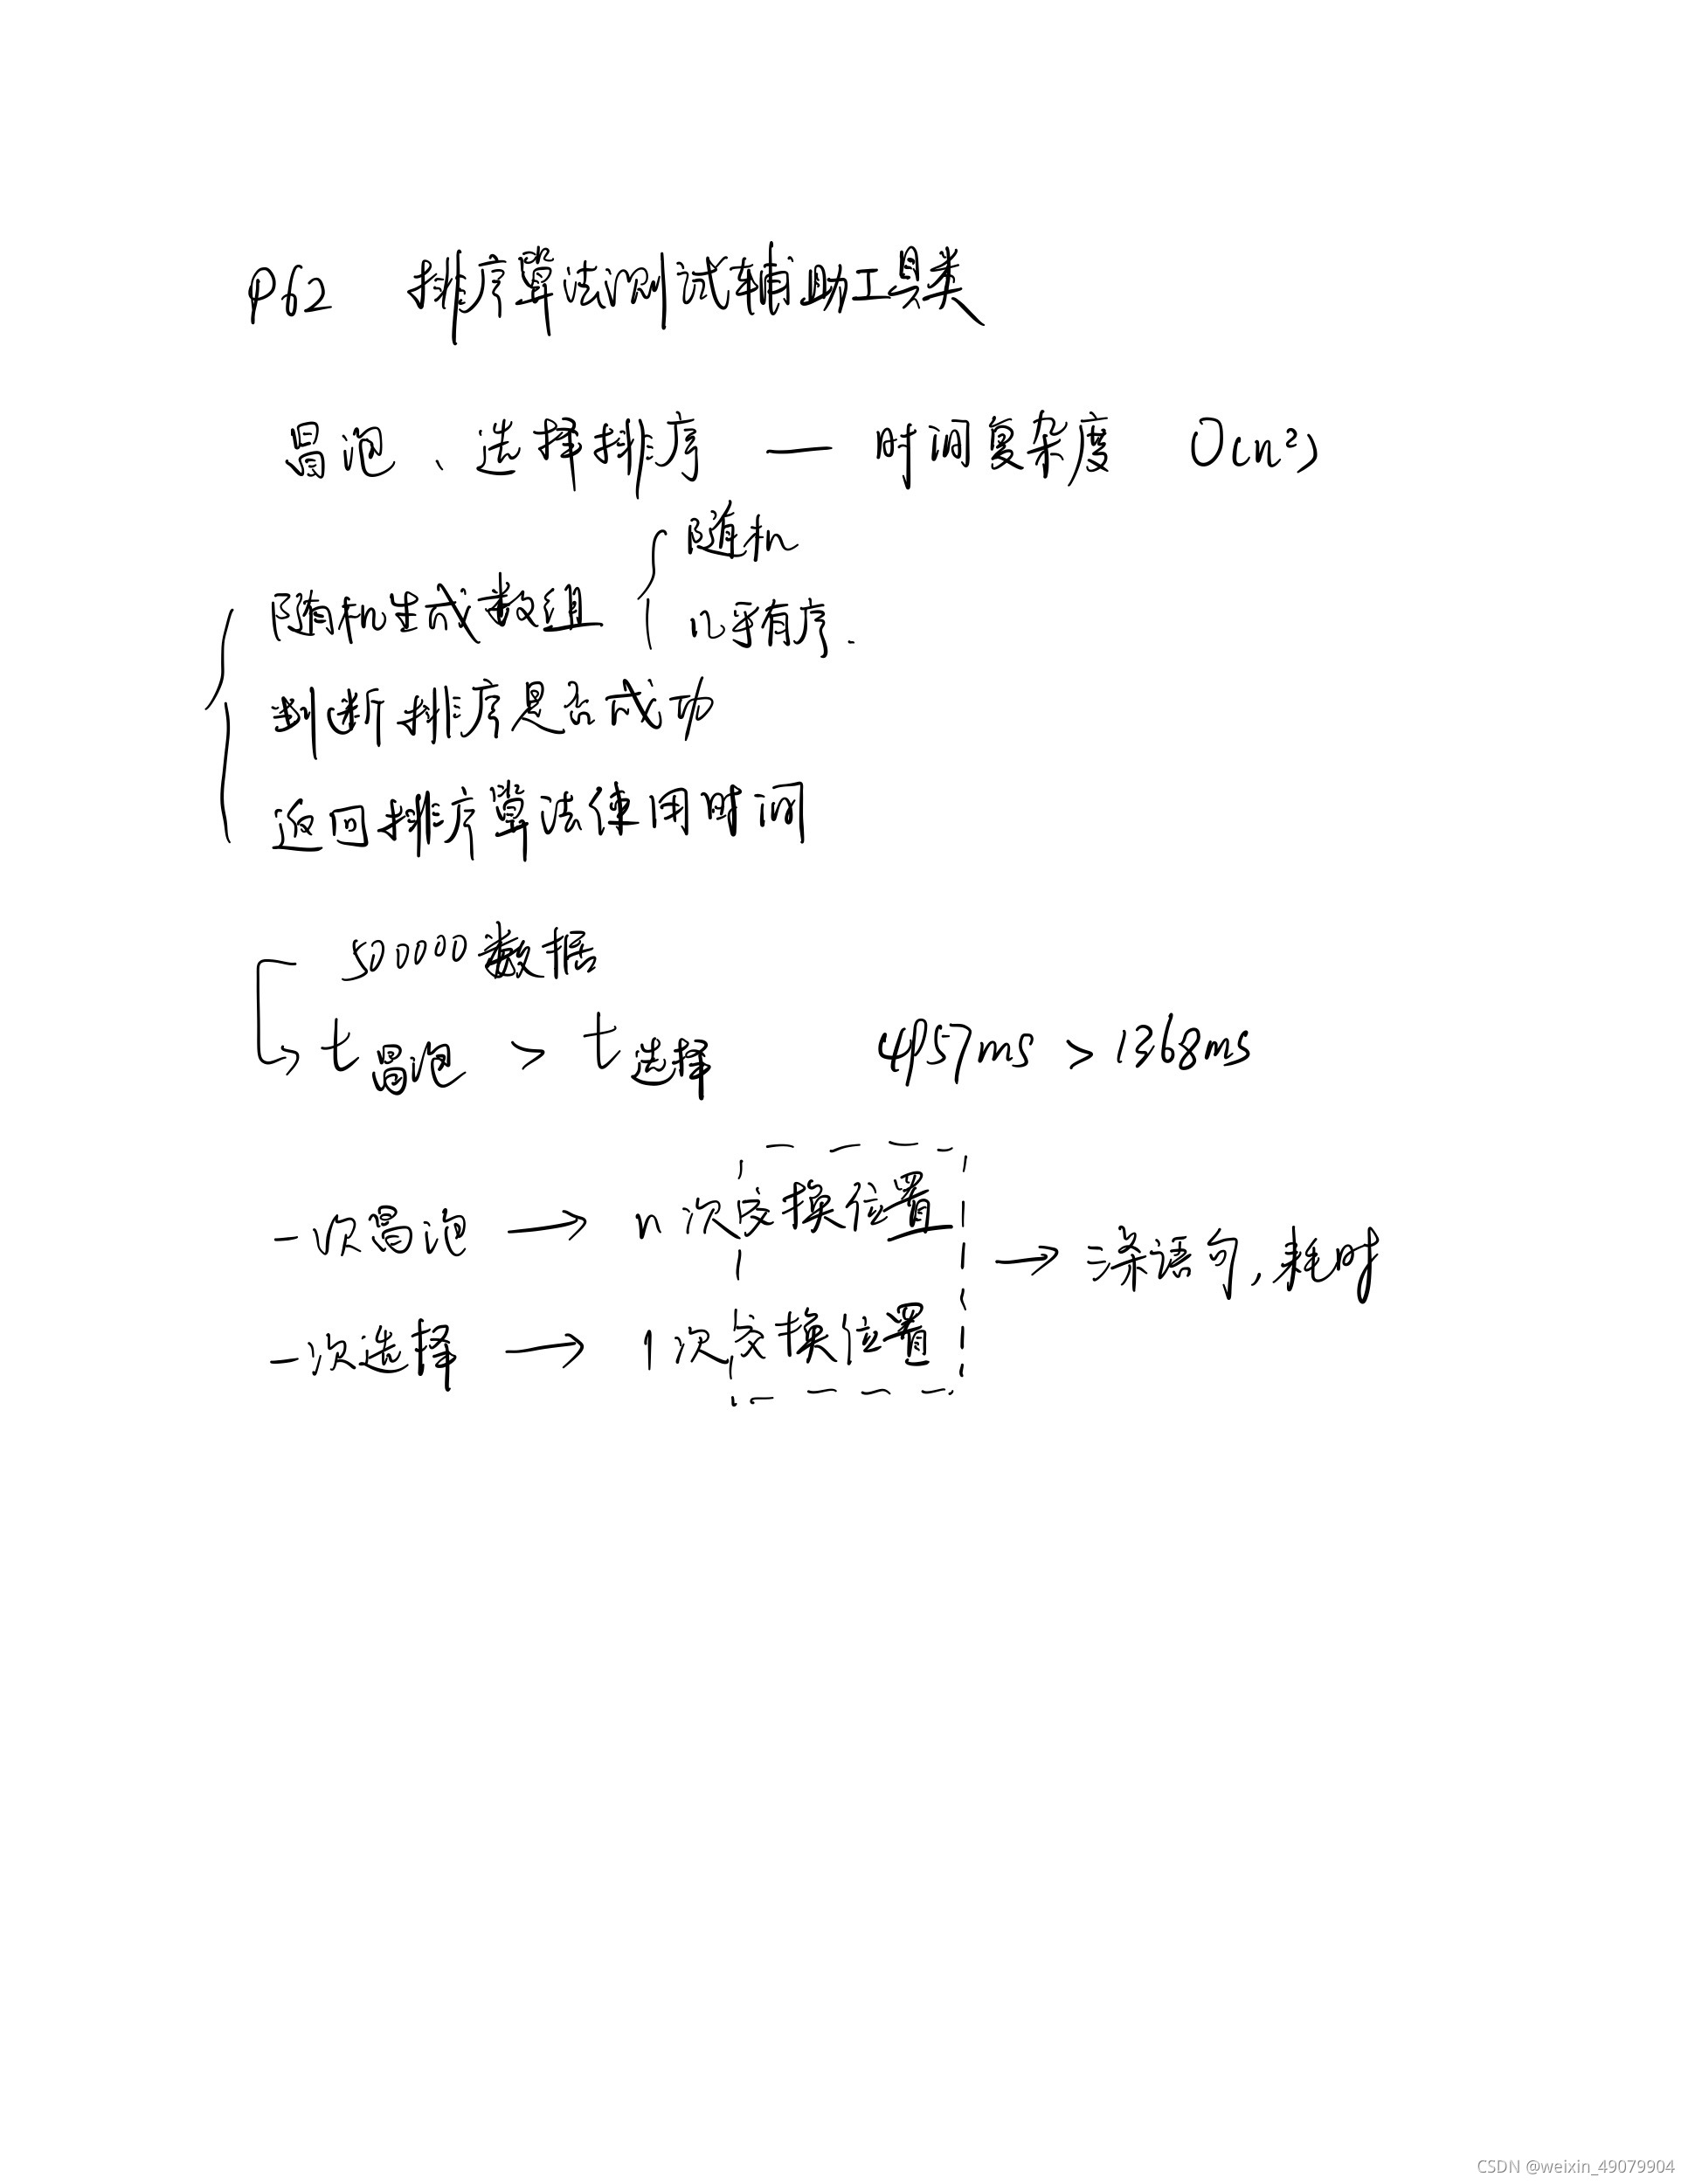 P62 排序算法测试辅助工具类
冒泡、选择排序 — 时间复杂度 O(n²)
随机
随机生成数组
几乎有序.
判断排序是否成功
返回排序算法使用时间
500000数据
t冒泡 > t选择 4957ms > 1368ms
一次冒泡 → n次交换位置
→ 三条语句,耗时
一次选择 → 1次交换位置
CSDN @weixin_49079904